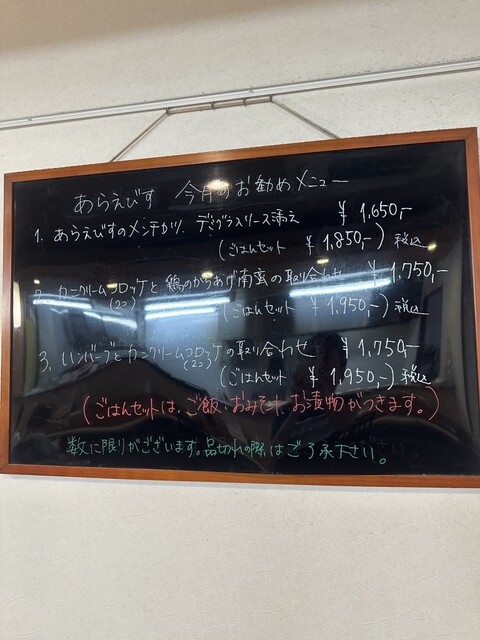 あらえびす 今月のお勧めメニュー
1. あらえびすのメンチカツ、デミグラスソース添え ¥1,650,-
(ごはんセット ¥1,850,-) 税込
2. カニクリームコロッケと鶏のからあげ南蛮の取り合わせ ¥1,750,-
(2コ)
(ごはんセット ¥1,950,-) 税込
3. ハンバーグとカニクリームコロッケの取り合わせ ¥1,750,-
(2コ)
(ごはんセット ¥1,950,-) 税込
(ごはんセットは、ご飯、おみそ汁、お漬物がつきます。)
数に限りがございます。品切れの際はご了承下さい。